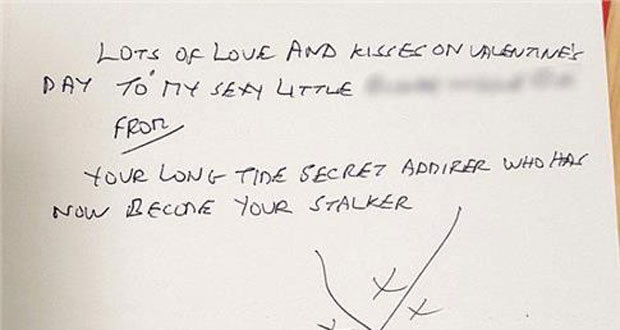 LOTS OF LOVE AND KISSES ON VALENTINE'S
DAY TO MY SEXY LITTLE
FROM
YOUR LONG TIME SECRET ADMIRER WHO HAS
NOW BECOME YOUR STALKER
X
X
X